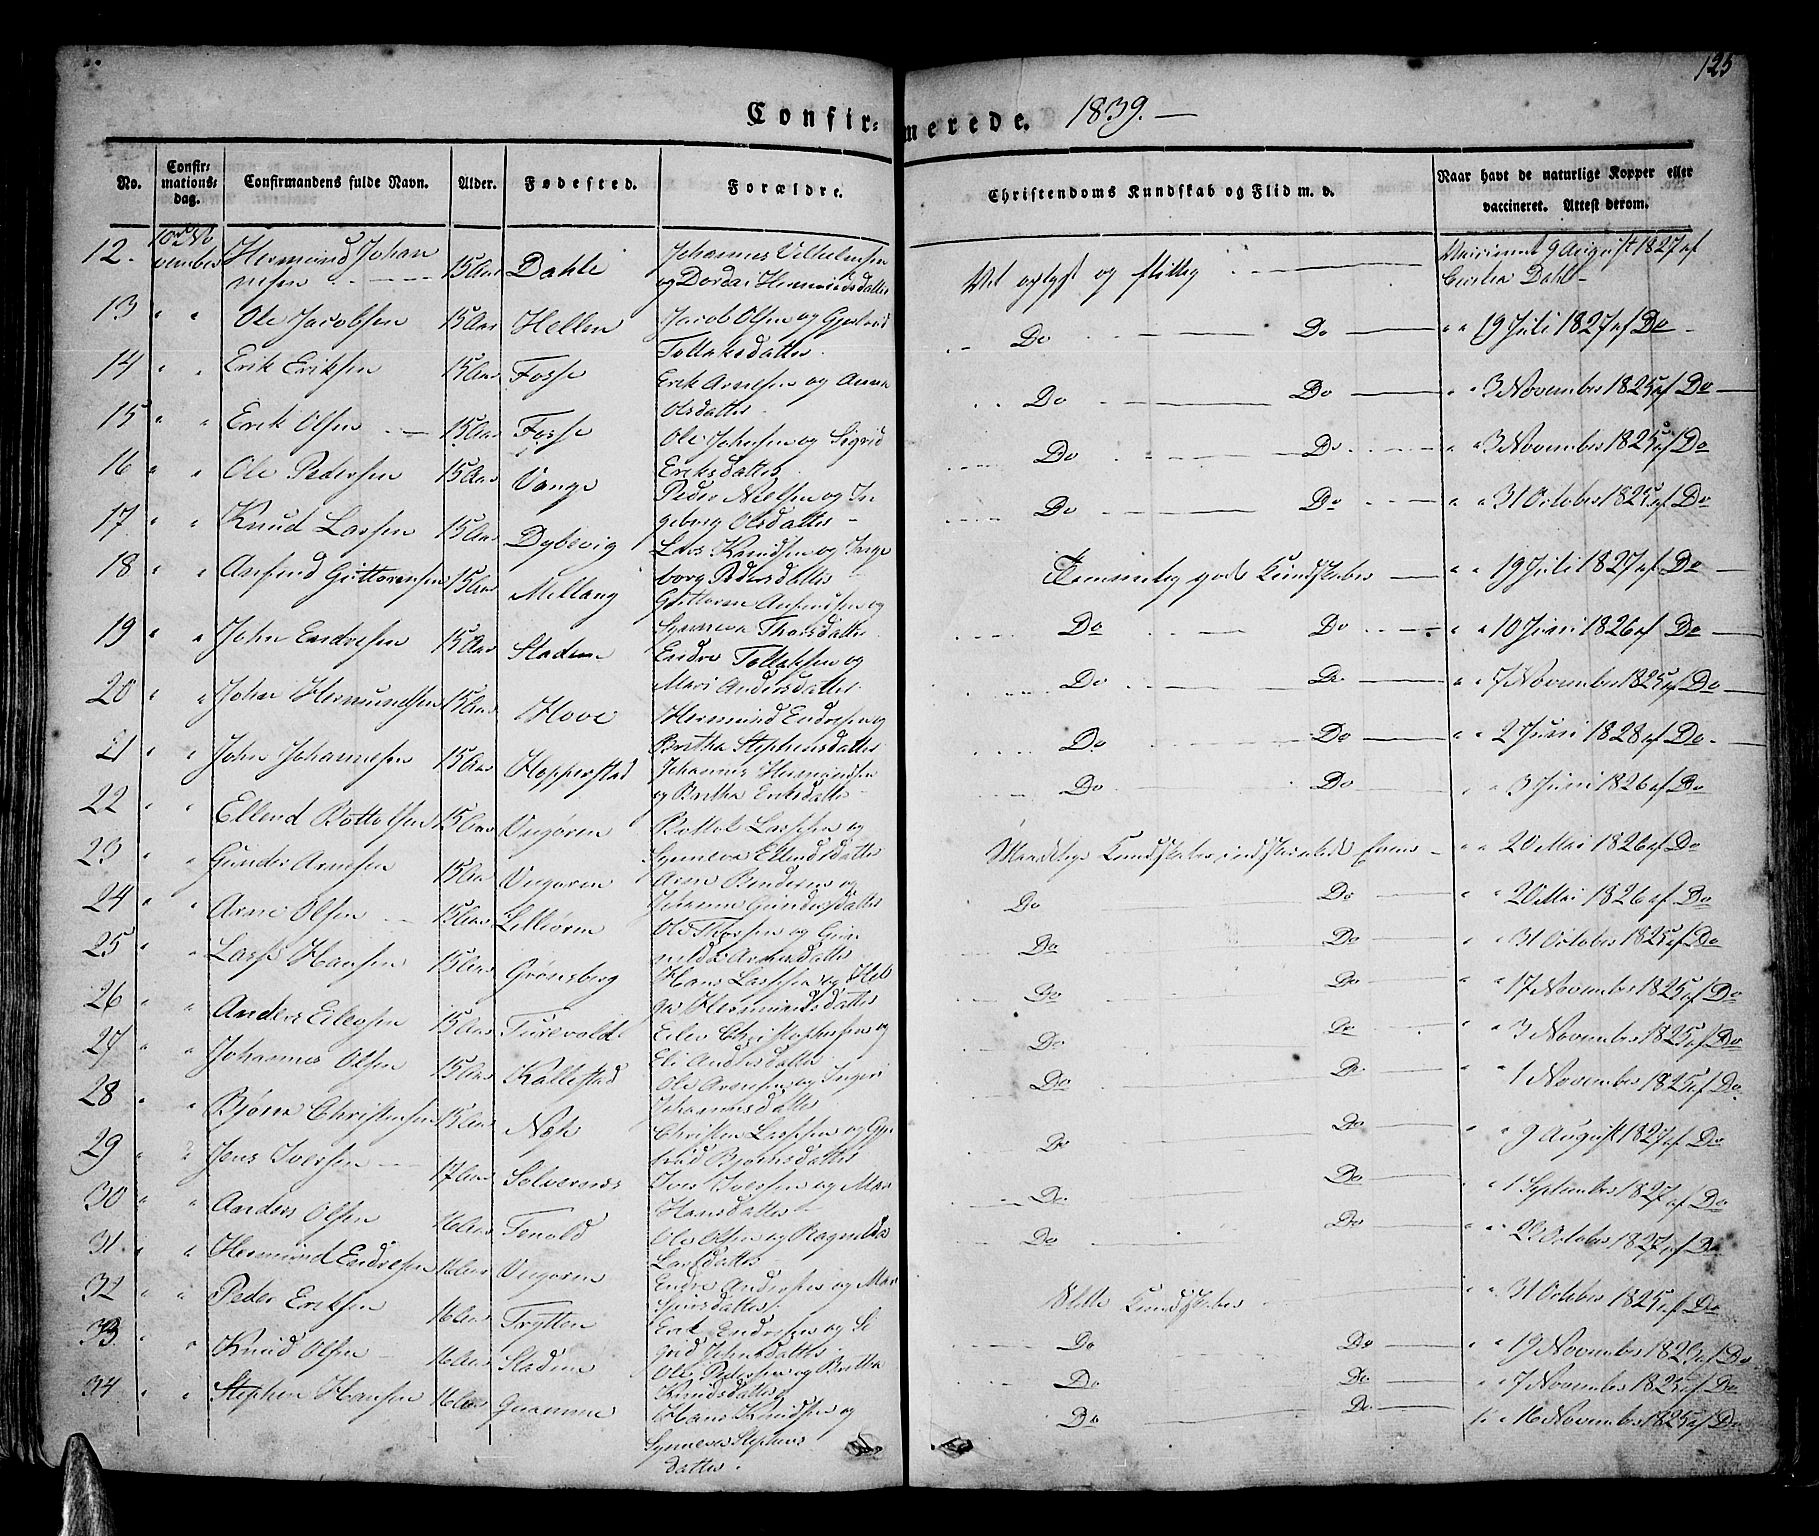 125
Confir= merede. 1839. —
No. Confir-mations-dag. Confirmandens fulde Navn. Alder. Fødested. Forældre. Christendoms Kundskab og Flid m. v. Naar havt de naturlige Kopper eller vaccineret. Attest derom.
12. 10de November Hermund Johannesen 15 Aar Dahle Johannes Vilhelmsen og Dordei Hermundsdatter Vel oplyst og flittig Vaccineret 9 August 1827 af Cecilia Dahl
13 " " Ole Jacobsen 15 Aar Hellen Jacob Olsen og Gjerlond Tollaksdatter Do Do " " 19 Juli 1827 af Do
14 " " Erik Eriksen 15 Aar Fosse Erik Arnesen og Anna Olsdatter Do Do " " 3 November 1825 af Do
15 " " Erik Olsen 15 Aar Fosse Ole Johnsen og Sigrid Eriksdatter Do Do " " 3 November 1825 af Do
16 " " Ole Pedersen 15 Aar Vange Peder Nielsen og Ingeborg Olsdatter Do Do " " 31 October 1825 af Do
17 " " Knud Larsen 15 Aar Dybevig Lars Knudsen og Ingeborg Pedersdatter Temmelig gode Kundskaber " " 19 Juli 1827 af Do
18 " " Anfind Guttormsen 15 Aar Mellang Guttorm Anfindsen og Synneva Thorsdatter Do Do " " 10 Juni 1826 af Do
19 " " John Endresen 15 Aar Stadem Endre Tollaksen og Mari Andersdatter Do Do " " 7 November 1825 af Do
20 " " John Hermundsen 15 Aar Hove Hermund Endresen og Britha Stephensdatter Do Do " " 2 Juni 1828 af Do
21 " " John Johannesen 15 Aar Hopperstad Johannes Hermundsen og Britha Eriksdatter Do Do " 3 Juni 1826 af Do
22 " " Ellend Bottolfsen 15 Aar Vigøren Bottol Larssen og Synneva Ellendsdatter Maadelige Kundskaber, indskrænkede Evner " " 20 Mai 1826 af Do
23 " " Gunder Arnesen 15 Aar Vigøren Arne og Johanne Gundersdatter Do Do " " 20 Mai 1826 af Do
24 " " Arne Olsen 15 Aar Lilleøren Ole Thorsen og Gunnilda Arnesdatter Do Do " " 31 October 1825 af Do
25 " " Lars Hansen 15 Aar Grønsberg Hans Larssen og Helga Hermundsdatter Do Do " " 17 November 1825 af Do
26 " " Anders Eilevsen 15 Aar Turevold Eilev Christophersen og Eli Andersdatter Do Do " " 3 November 1825 af Do
27 " " Johannes Olsen 15 Aar Kallestad Ole Arnesen og Ingeri Johannesdatter Do Do " " 1 November 1825 af Do
28 " " Bjørne Christensen 15 Aar Næse Christen Larssen og Bjørnsdatter Do Do " " 9 August 1827 af Do
29 " " Jens Iversen 17 Aar Solvernes Iver Iversen og Mari Hansdatter Do Do " " 1 September 1827 af Do
30 " " Anders Olsen 16 Aar Tenold Ole Olsen og Ragnilda Larsdatter Do Do " " 22 October 1827 af Do
31 " " Hermund Endresen 16 Aar Vigøren Endre Andersen og Mari Kundskaber " " 31 October 1825 af Do
32 " " Peder Eriksen 16 Aar Trytten Erik Endresen og Sigrid Johnsdatter Do Do " " 19 November 1825 af Do
33 " " Knud Olsen 16 Aar Stadem Ole Pedersen og Britha Knudsdatter Do Do " " 7 November 1825 af Do
34 " " Stephen Hansen 16 Aar Quamme Hans Knudsen og Synneva Stephensdatter Do Do " " 16 November 1825 af Do